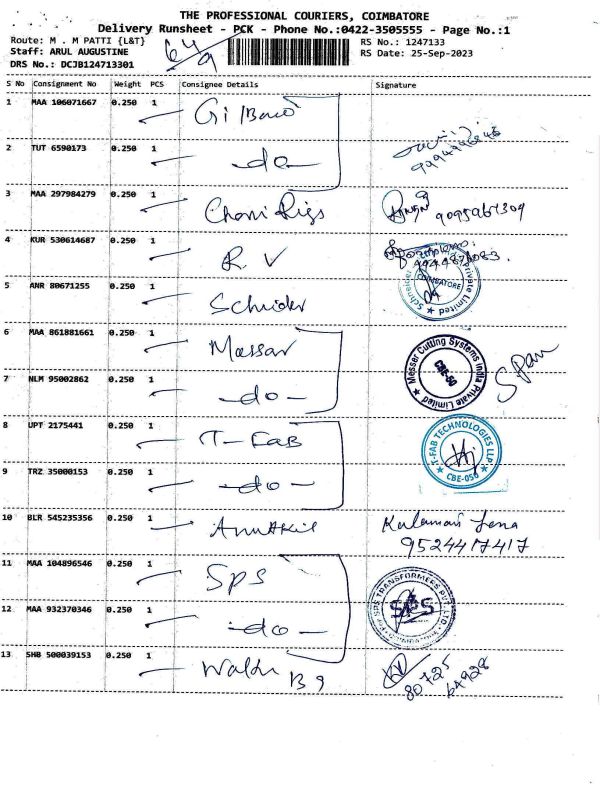 THE PROFESSIONAL COURIERS, COIMBATORE
Delivery Runsheet - PCK - Phone No.:0422-3505555 - Page No.:1
Route: M . M PATTI {L&T}
RS No.: 1247133
Staff: ARUL AUGUSTINE
RS Date: 25-Sep-2023
DRS No.: DCJB124713301
S No Consignment No Weight PCS Consignee Details Signature
1 MAA 106071667 0.250 1
2 TUT 6590173 0.250 1 -do-
3 MAA 297984279 0.250 1
4 KUR 530614687 0.250 1 R V
5 ANR 80671255 0.250 1
Schneider Private Limited
COIMBATORE
6 MAA 861881661 0.250 1 Massar
Messer Cutting Systems India Private Limited
CBE-50
7 NLM 95002862 0.250 1 -do-
8 UPT 2175441 0.250 1 T-Fab
T-FAB TECHNOLOGIES LLP
CBE-050
9 TRZ 35000153 0.250 1 -do-
10 BLR 545235356 0.250 1
9524417417
11 MAA 104896546 0.250 1 SPS
SPS TRANSFORMERS PVT. LTD.
SPS
12 MAA 932370346 0.250 1 -do-
13 SHB 500039153 0.250 1
80725
64928